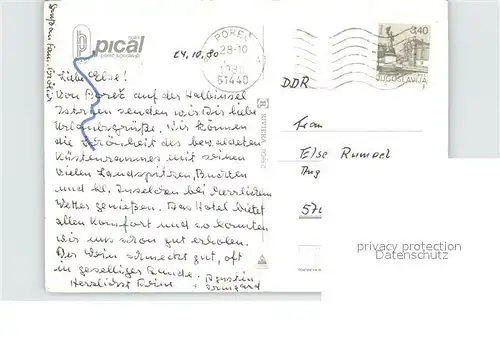 Gruß an Fam.
pical
24.10.80
POREČ
28-10
1980
51440
3,40
JUGOSLAVIJA
DDR
Liebe Else!
Von Poreč auf der Halbinsel
Istrien senden wir Dir liebe
Urlaubsgrüße. Wir können
die Schönheit des bewaldeten
Küstenraumes mit seinen
vielen Landspitzen, Buchten
und kl. Inselchen bei herrlichem
Wetter genießen. Das Hotel bietet
allen Komfort und so konnten
wir uns schon gut erholen.
Der Wein schmeckt gut, oft
in geselliger Runde.
Herzlichst Deine
Irmgard
Frau
Else Rumpel
57
privacy protection
Datenschutz